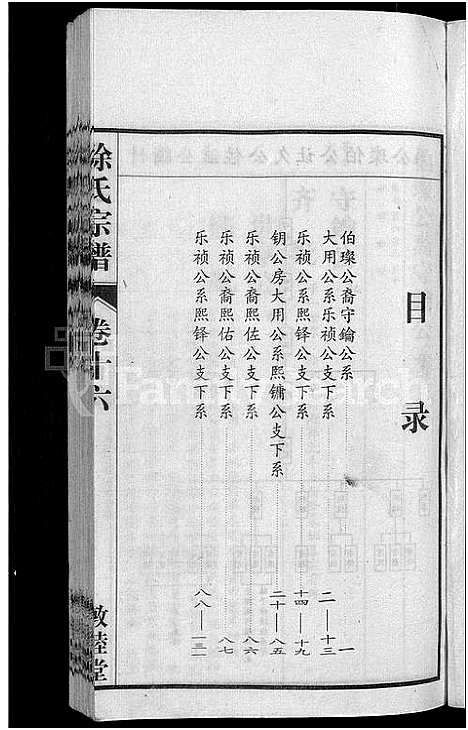 目录
伯璨公裔守鑰公系 一
大用公系乐祯公支下系 二——十三
乐祯公系熙铎公支下系 十四——十九
钥公房大用公系熙镛公支下系 二十——八五
乐祯公裔熙佐公支下系 八六
乐祯公裔熙佑公支下系 八七
乐祯公系熙铎公支下系 八八——一三一
徐氏宗谱
卷十六
敦睦堂